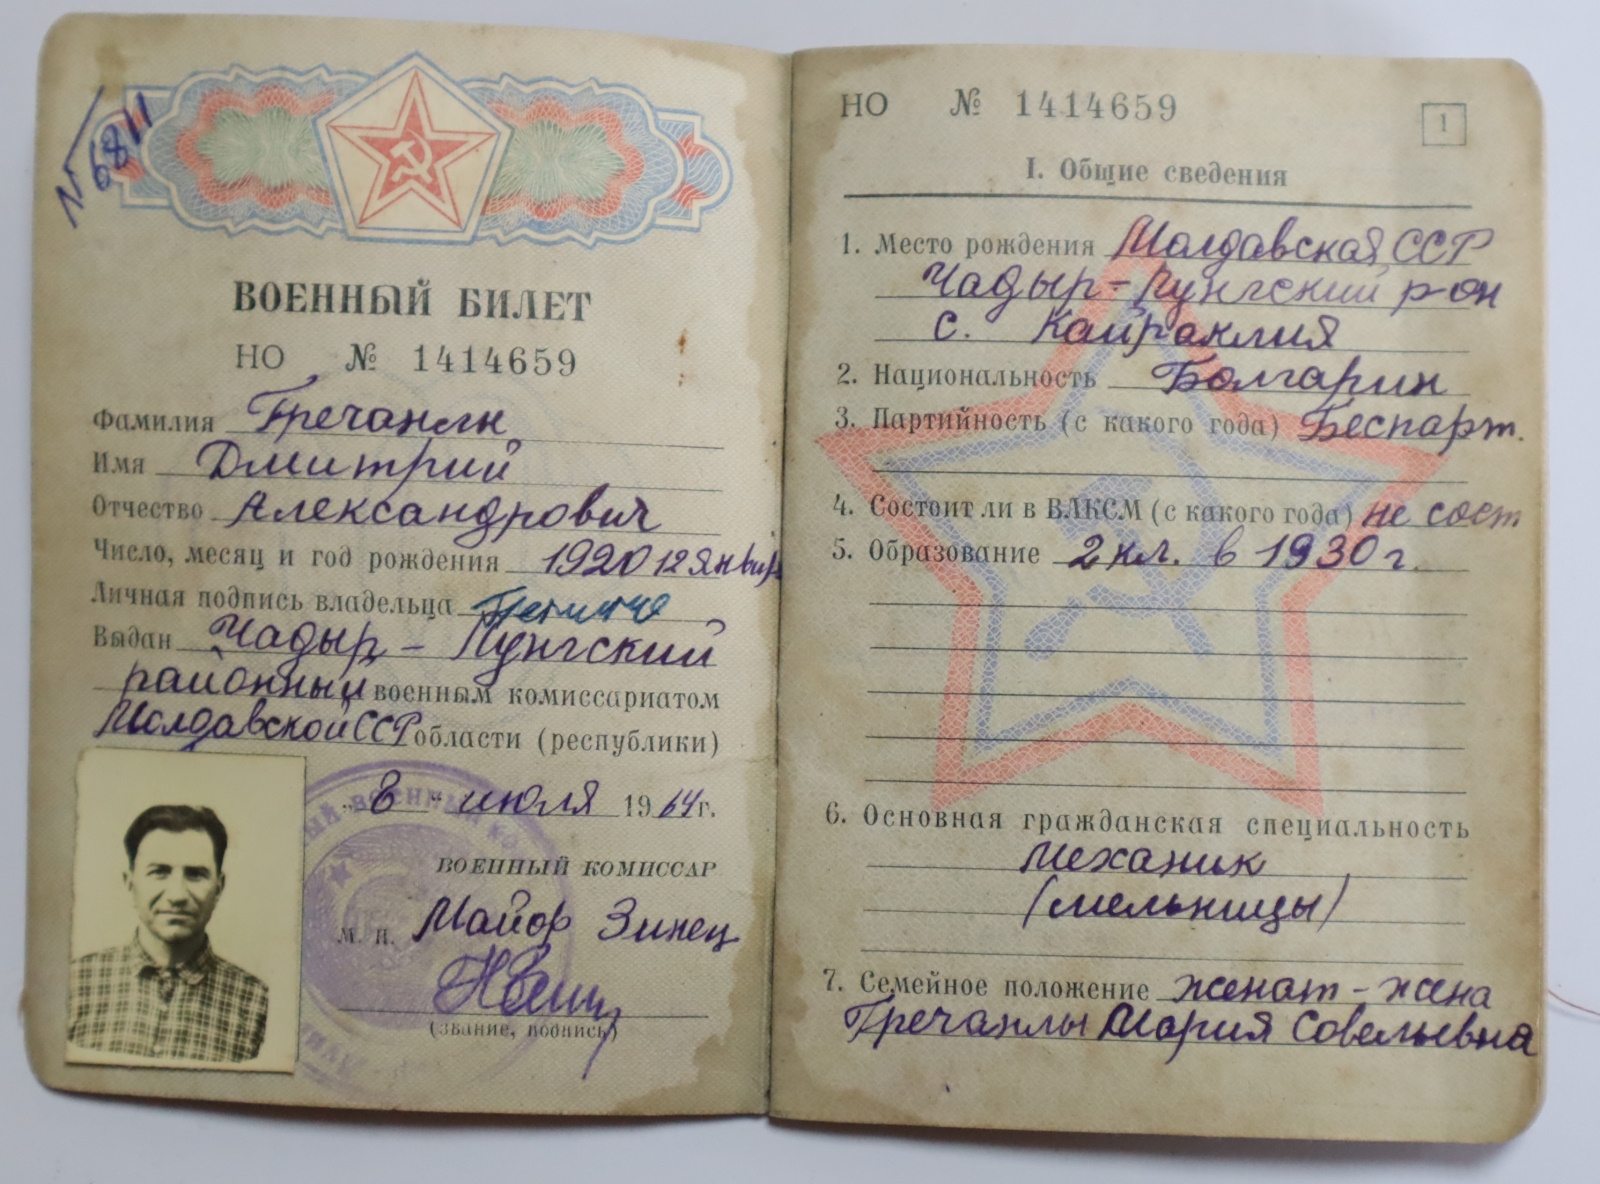 № 6811
ВОЕННЫЙ БИЛЕТ
НО № 1414659
Фамилия Гречанлы
Имя Дмитрий
Отчество Александрович
Число, месяц и год рождения 1920 12 январ
Личная подпись владельца
Выдан Чадыр-Лунгский
районный военным комиссариатом
Молдавской ССР области (республики)
„8" июля 1964г.
ВОЕННЫЙ КОМИССАР
м. п. Майор Зинец
(звание, подпись)
НО № 1414659
1
I. Общие сведения
1. Место рождения Молдавская ССР
Чадыр-Лунгский р-он
с. Кайраклия
2. Национальность Болгарин
3. Партийность (с какого года) Беспарт.
4. Состоит ли в ВЛКСМ (с какого года) не сост
5. Образование 2 кл. в 1930 г.
6. Основная гражданская специальность
механик
(мельницы)
7. Семейное положение женат - жена
Гречанлы Мария Савельевна